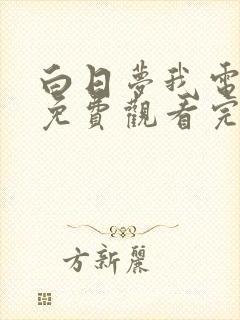 白日夢我電
免費觀看完
方新麗